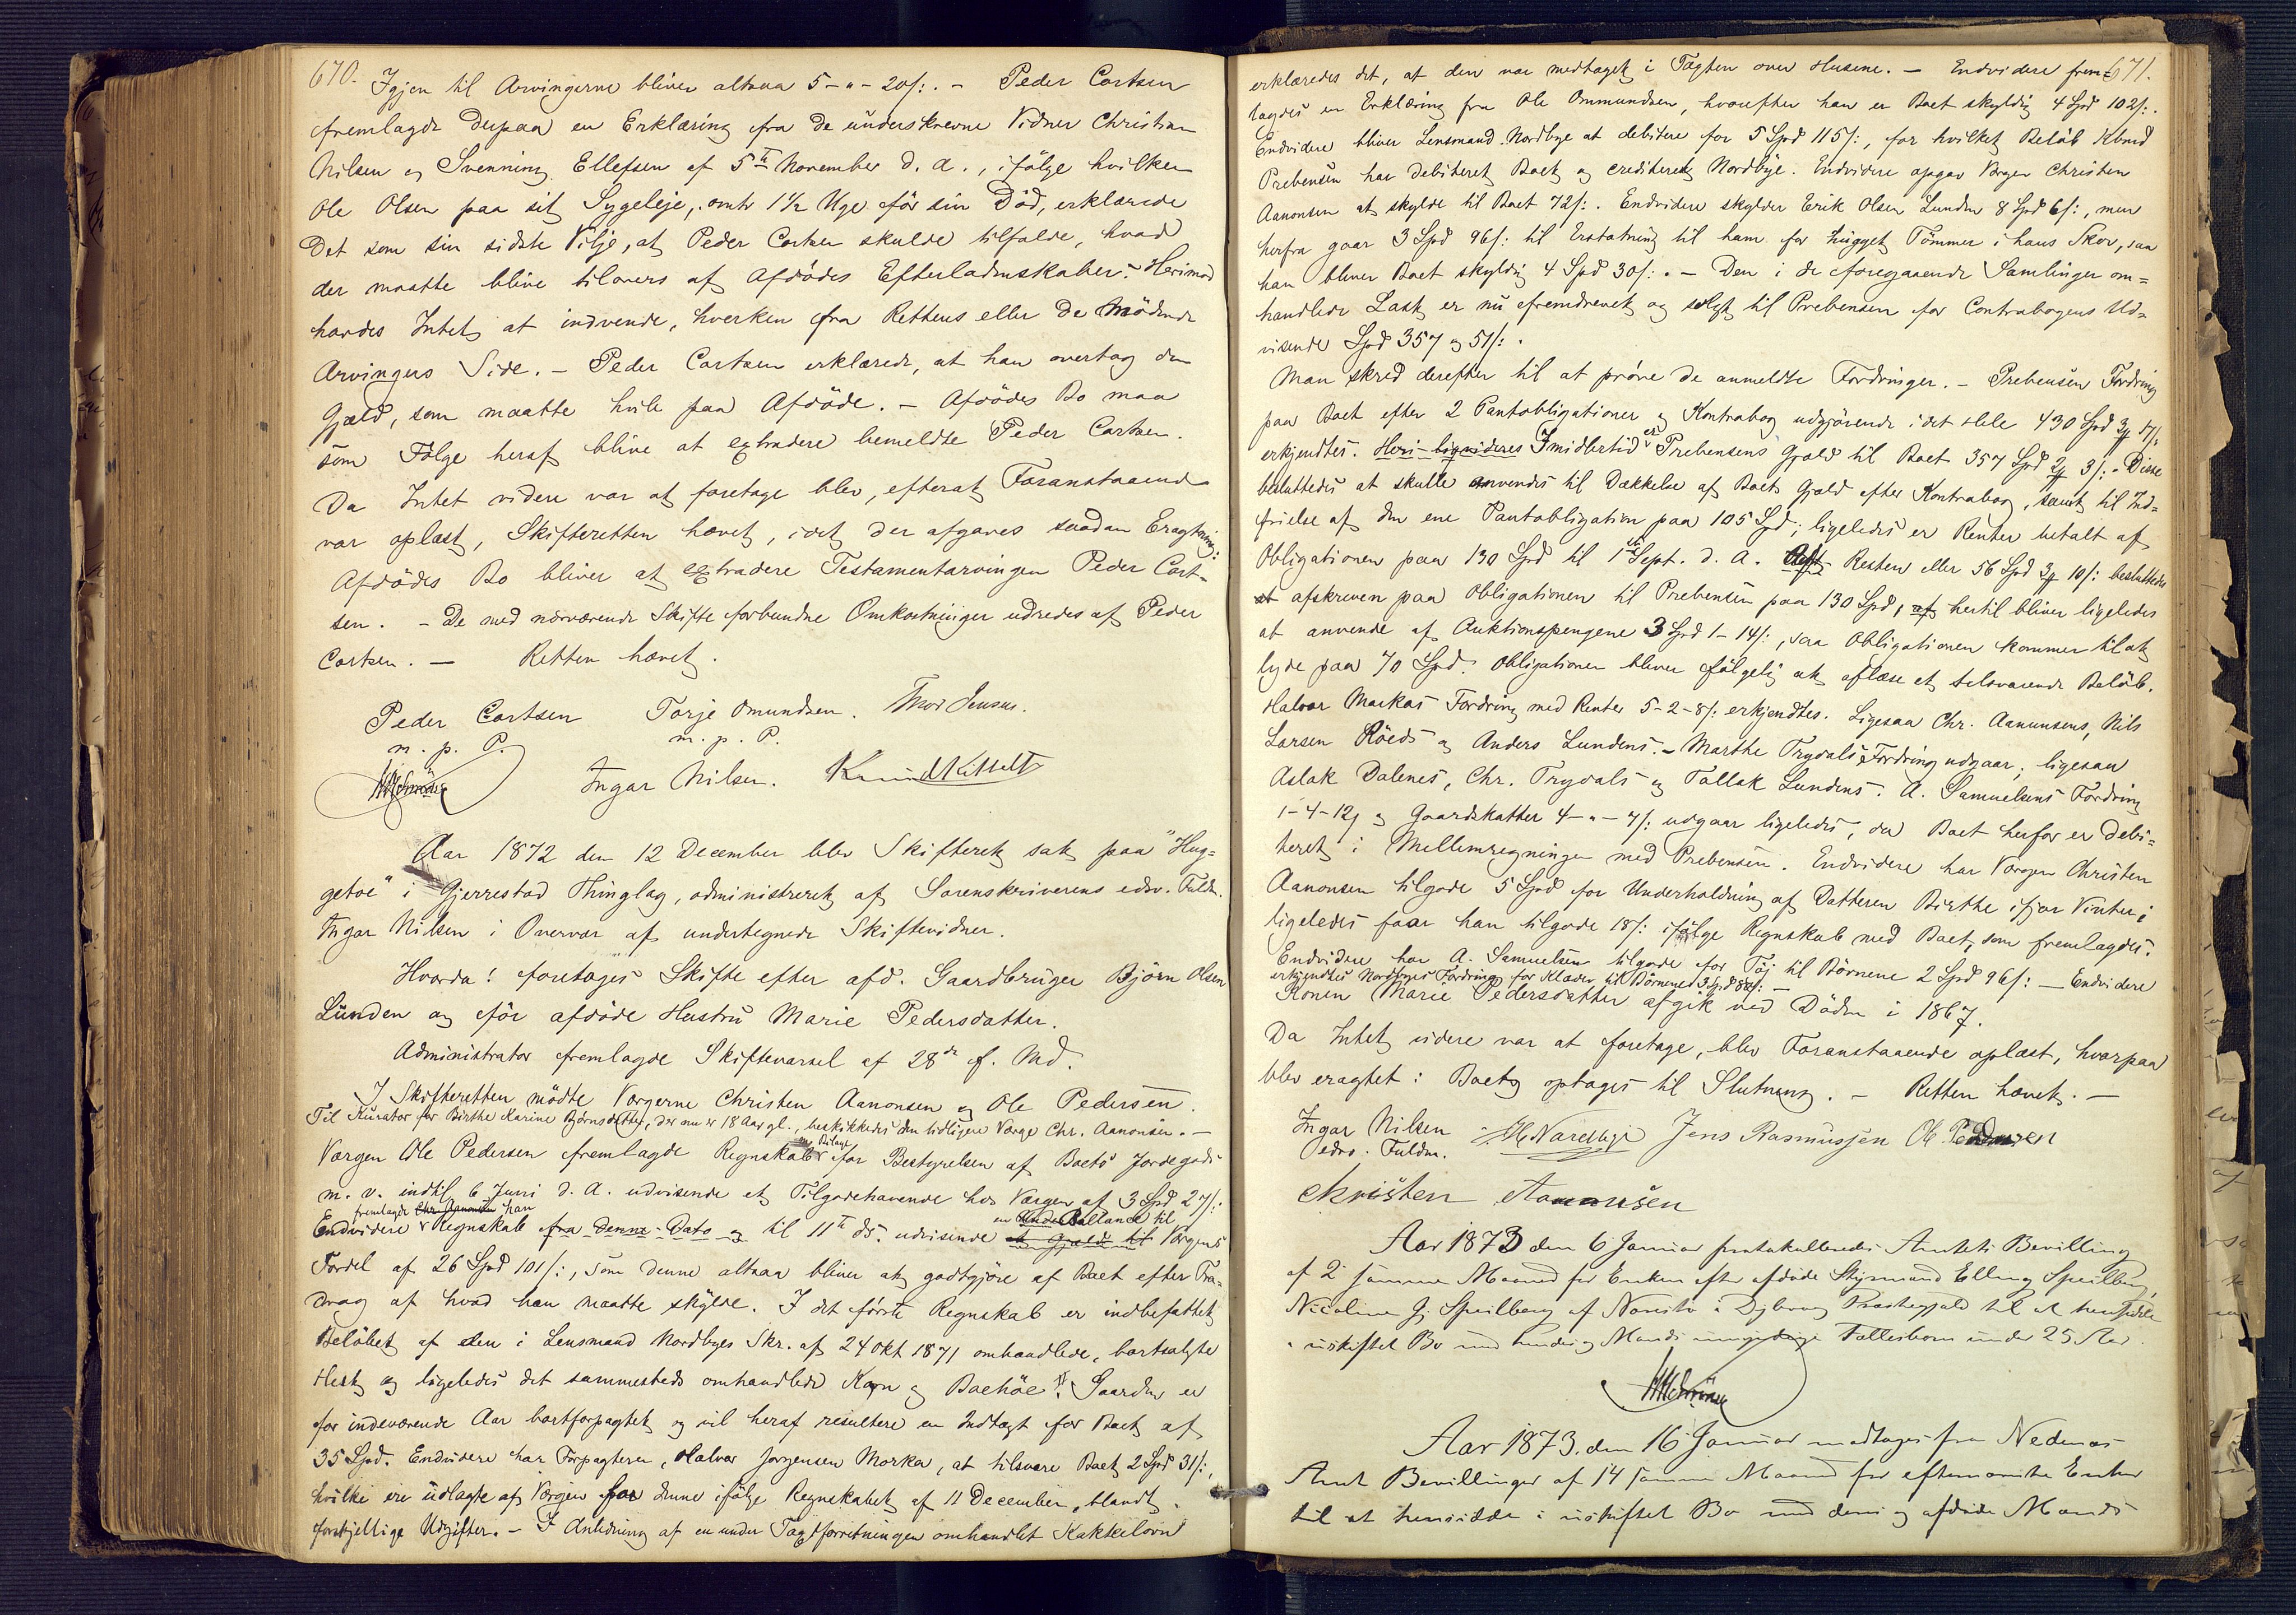 670.
Igjen til Arvingerne bliver altsaa 5-"-20/:. - Peder Cortsen
fremlagde derpaa en Erklæring fra de underskrevne Vidner Christian
Nilsen og Svenning Ellefsen af 5te November d. A., ifølge hvilken
Ole Olsen paa sit Sygeleje, omtr 1 1/2 Uge før sin Død, erklærede
det som sin sidste Vilje, at Peder Cortsen skulde tilfalde, hvad
der maatte blive tilovers af Afdødes Efterladenskaber. Herimod
havdes Intet at indvende, hverken fra Rettens eller de mødende
Arvingers Side. - Peder Cortsen erklærede, at han overtog den
Gjæld, som maatte hvile paa Afdøde. - Afdødes Bo maa
som Følge heraf blive at extradere bemeldte Peder Cortsen.
Da Intet videre var at foretage blev, efterat Foranstaaende
var oplæst, Skifteretten hævet, idet der afgaves saadan Eragtning:
Afdødes Bo bliver at extradere Testamentarvingen Peder Cort-
sen. - De med nærværende Skifte forbundne Omkostninger udredes af Peder
Cortsen. - Retten hævet.
Peder Cortsen Torje Omundsen. Thor Jensen.
m. p. P. m. p. P.
Ingar Nilsen. Knud Kittelt
Aar 1872 den 12 December blev Skifteret sat paa "Hug-
getoe" i Gjerrestad Thinglag, administreret af Sorenskriverens edsv. Fuldm.
Ingar Nilsen i Overvær af undertegnede Skiftevidner.
Hvorda! foretages Skifte efter afd. Gaardbruger Bjørn Olsen
Lunden og før afdøde Hustru Marie Pedersdatter.
Administrator fremlagde Skiftevarsel af 28de f. Md.
I Skifteretten mødte Værgerne Christen Aanonsen og Ole Pedersen.
Til Kurator for Birthe Karine Bjørnsdatter, der nu er 18 Aar gl., beskikkedes den tidligere Værge Chr. Aanonsen. -
Værgen Ole Pedersen fremlagde Regnskab for Bestyrelsen af Boets Jordegods
m. v. indtil 6 Juni d. A. udvisende et Tilgodehavende hos Værgen af 3 Spd 27/:
fremlagde Chr. Aanonsen han
Endvidere Regnskab fra denne Dato og til 11te ds. udvisende en Ballance til Værgens
Fordel af 26 Spd 101/:, som denne altsaa bliver at godtgjøre af Boet efter Fra-
drag af hvad han maatte skylde. I det første Regnskab er indbefattet
Beløbet af den i Lensmand Nordbyes Skr. af 24 Okt 1871 omhandlede, bortsolgte
Hest og ligeledes det sammesteds omhandlede Korn og Boehøe. Gaarden er
for indeværende Aar bortforpagtet og vil heraf resultere en Indtægt for Boet af
35 Spd. Endvidere har Forpagteren, Halvor Jorgensen Morka, at tilsvare Boet 2 Spd 31/:,
hvilke ere udlagte af Værgen for denne ifølge Regnskabet af 11 December, blandt
forskjellige Udgifter. - I Anledning af en under Tagtforretningen omhandlet Kakkelovn
671.
erklæredes det, at den var medtaget i Tagten over Husene. - Endvidere frem-
lagdes en Erklæring fra Ole Ommundsen, hvorefter han er Boet skyldig 4 Spd 102/:.
Endvidere bliver Lensmand Nordbye at debitere for 5 Spd 115/:, for hvilket Beløb Kbmd
Prebensen har debiteret Boet og crediteret Nordbye. Endvidere opgav Værgen Christen
Aanonsen at skylde til Boet 72/:. Endvidere skylder Erik Olsen Lunden 8 Spd 6/:, men
herfra gaar 3 Spd 96/: til Erstatning til ham for hugget Tømmer i hans Skov, saa
han bliver Boet skyldig 4 Spd 30/:. - Den i de foregaaende Samlinger om-
handlede Last er nu fremdrevet og solgt til Prebensen for Contrabogens Ud-
visende Spd 357 og 51/:.
Man skred derefter til at prøve de anmeldte Fordringer. - Prebensens Fordring
paa Boet efter 2 Pantobligationer og Kontrabog udgjørende i det Hele 430 Spd 3 17/:
erkjendtes. Heri liqvideres Imidlertid er Prebensens Gjæld til Boet 357 Spd 2 3/:. Disse
besluttedes at skulle anvendes til Dækkelse af Boets Gjæld efter Kontrabog, samt til Ind-
frielse af den ene Pantobligation paa 105 Spd; ligeledes er Renter betalt af
Obligationen paa 130 Spd til 1ste Sept. d. A. Resten eller 56 Spd 3 10/: besluttedes
at afskreven paa Obligationen til Prebensen paa 130 Spd, hertil bliver ligeledes
at anvende af Auktionspengene 3 Spd 1-14/:, saa Obligationen kommer til at
lyde paa 70 Spd. Obligationen bliver følgelig at aflæse et tilsvarende Beløb.
Halvor Morkas Fordring med Renter 5-2-8/: erkjendtes. Ligesaa Chr. Aanonsens, Nils
Larsen Røeds og Anders Lundens. - Marthe Trydals Fordring udgaar; ligesaa
Aslak Dalenes, Chr. Trydals og Tallak Lundens. A. Samuelsens Fordring
1-4-12/ og Gaardskatter 4-"-7/: udgaar ligeledes, da Boet herfor er debi-
teret i Mellemregningen med Prebensen. Endvidere har Værgen Christen
Aanonsen tilgode 5 Spd for Underholdning af Datteren Birthe ifjor Vinter;
ligeledes faar han tilgode 18/: ifølge Regnskab med Boet, som fremlagdes.
Endvidere har A. Samuelsen tilgode for Tøj til Børnene 2 Spd 96/: - Endvidere
erkjendtes Nordbyes Fordring for Klæder til Børnene 3 Spd 88/: -
Konen Marie Pedersdatter afgik ved Døden i 1867.
Da Intet videre var at foretage, blev Foranstaaende oplæst, hvorpaa
blev eragtet: Boet optages til Slutning. - Retten hævet. -
Ingar Nilsen Jens Rasmussen Ole Pedersen
Edsv. Fuldm.
Christen Aanonsen
Aar 1873 den 6 Januar protokolleredes Amtets Bevilling
af 2 samme Maaned for Enken efter afdøde Styrmand Elling Speilberg,
Nicoline G. Speilberg af Narestø i Dybvaag Præstegjæld til at hensidde
i uskiftet Bo med hendes og Mands umyndige Fællesbørn under 25 Aar.
Aar 1873. den 16 Januar modtages fra Nedenæs
Amt Bevillinger af 14 samme Maaned for efternævnte Enker
til at hensidde i uskiftet Bo med deres og afdøde Mands